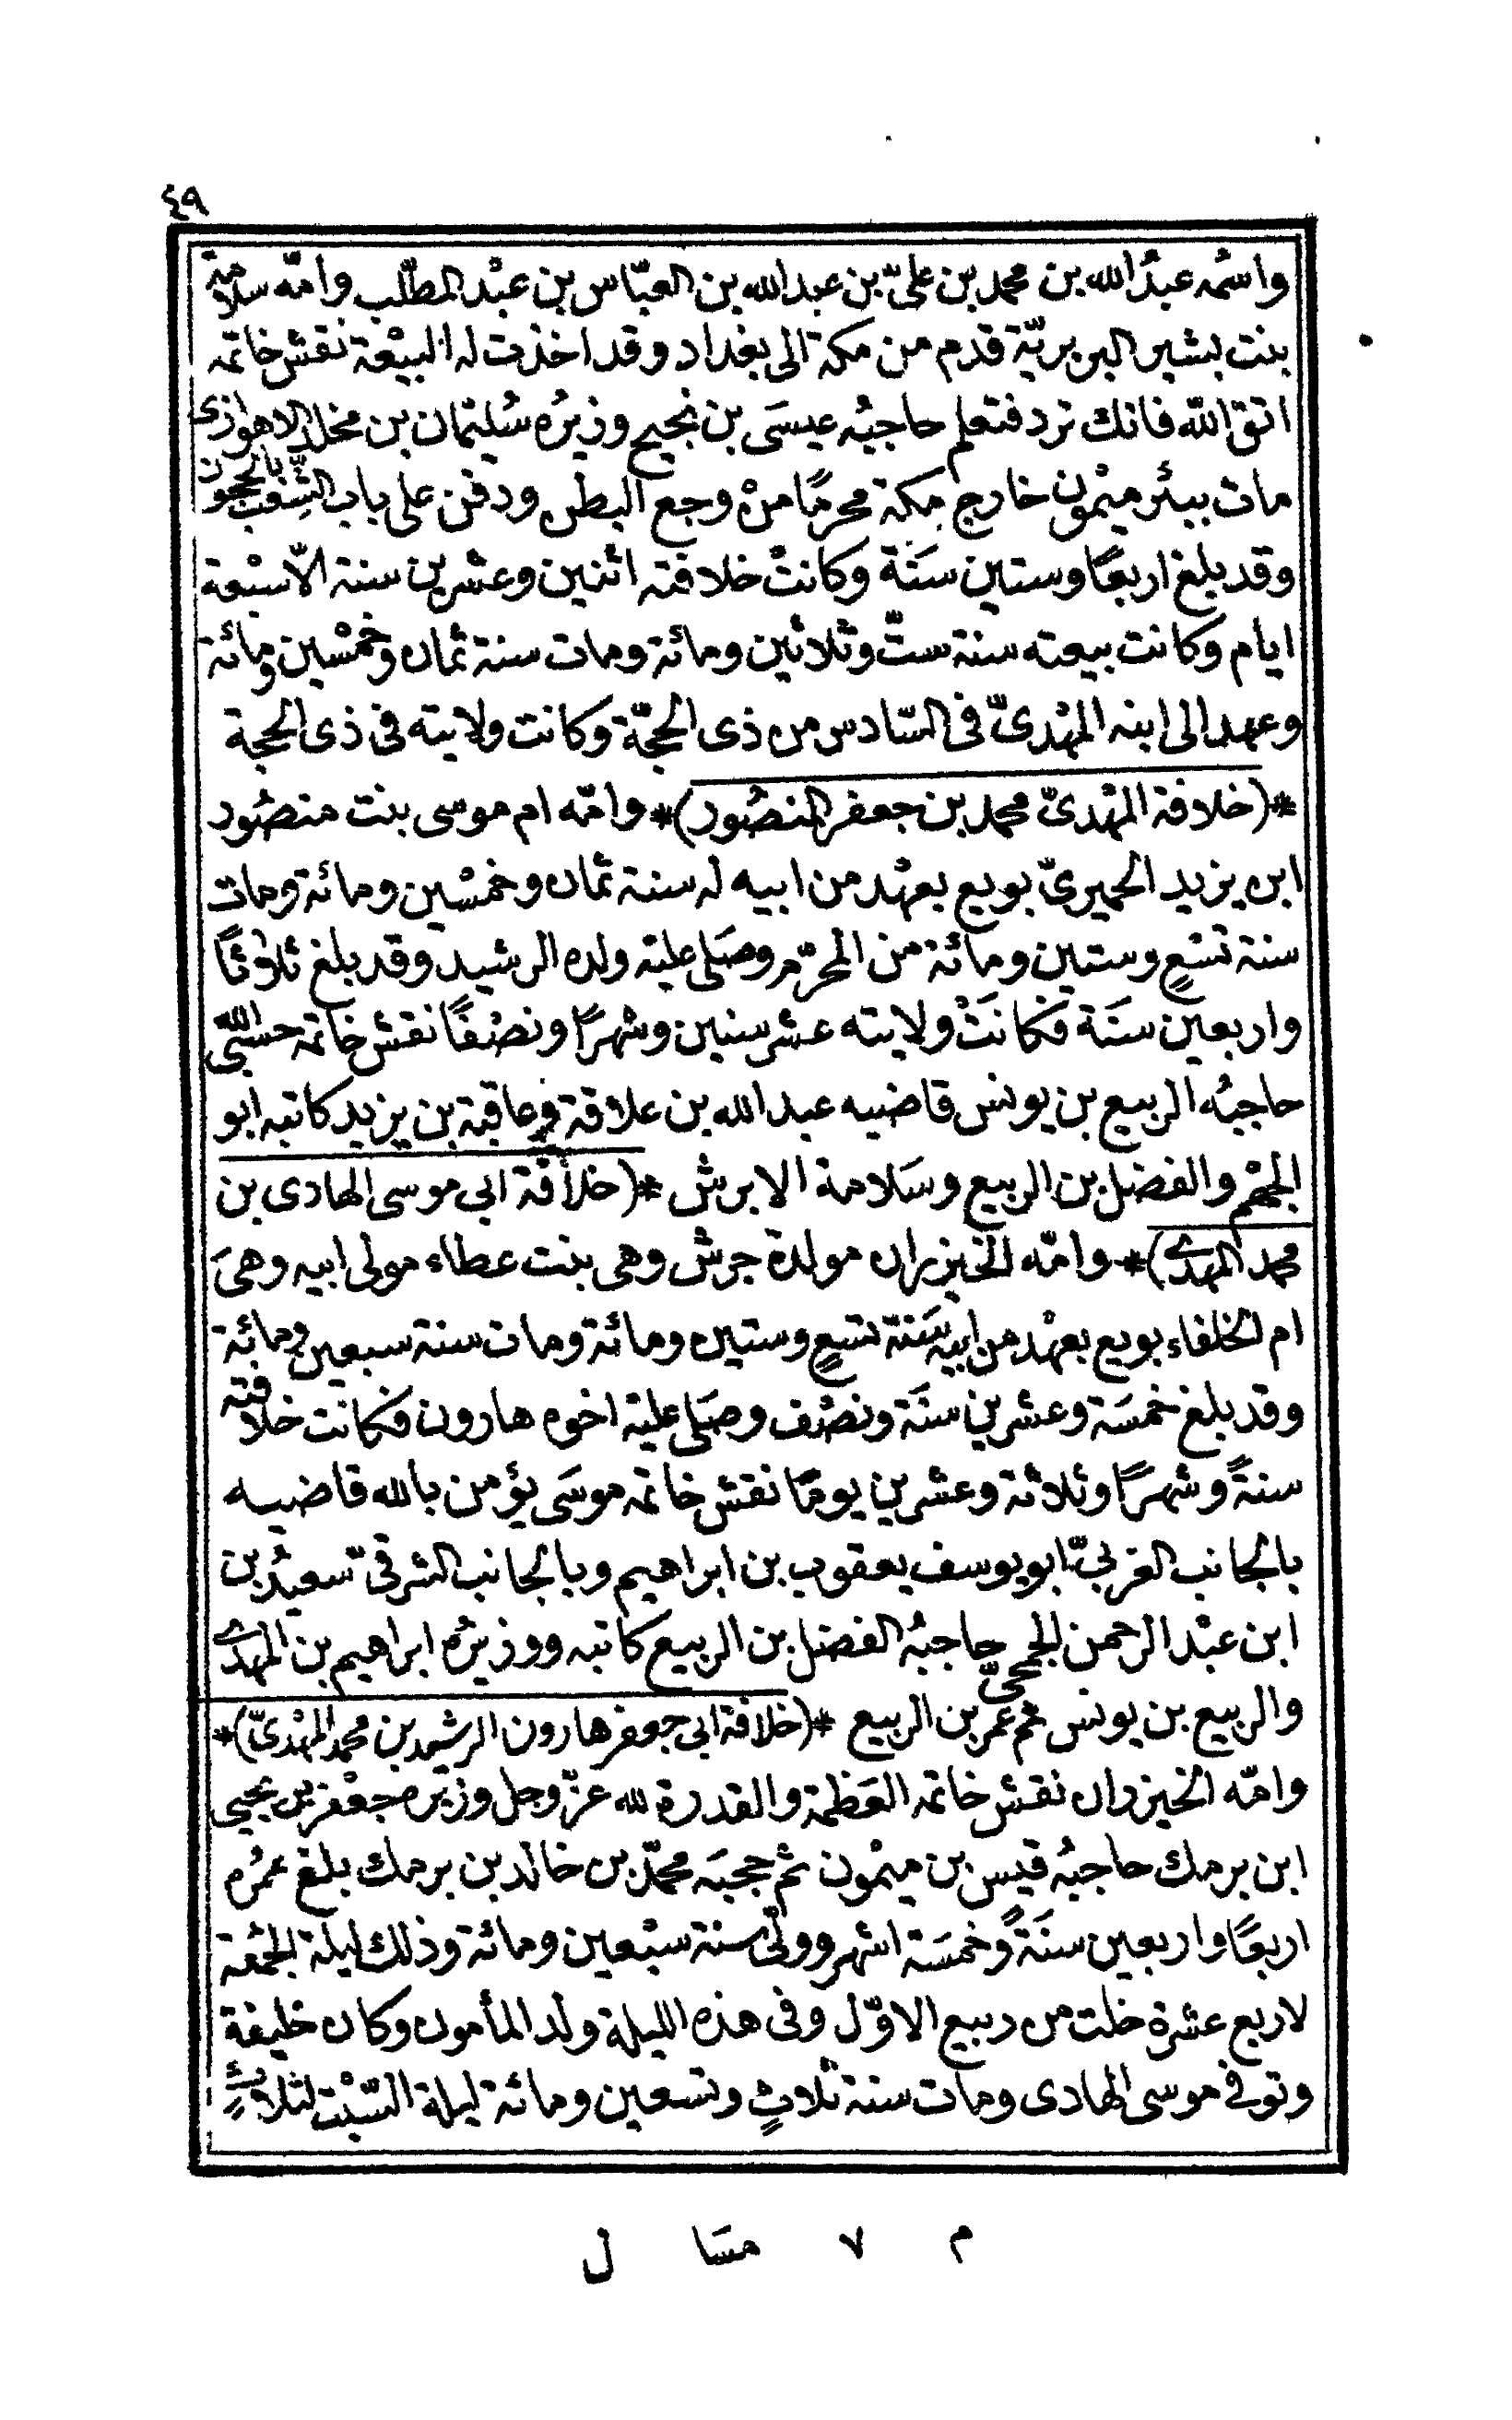 ٤٩
واسْمُه عبدُ الله بن محمد بن علىّ بن عبد الله بن العبّاس بن عبْد المطّلب وامّه سلامة
بنت بشير البربريّة قدم من مكة الى بغداد وقد اخذت له البيْعة نقش خاتمه
اتق الله فانك ترد فتعلم حاجبُه عيسَى بن نجيح وزيرُه سُليْمان بن مخلد الاهوازى
مات ببئر ميْمون خارج مكة محرمًا منْ وجع البطن ودفن على باب الشّعب بالحجون
وقد بلغ اربعًا وستين سَنَة وكانتْ خلافته اثنين وعشرين سنة الّا سبْعة
ايام وكانت بيعته سنة ستّ وثلاثين ومائة ومات سنة ثمان وخمْسين ومائة
وعهد الى ابنه المهْدىّ فى السّادس من ذى الحجّة وكانت ولايته فى ذى الحجة
*(خلافة المهْدىّ محمد بن جعفر المنصُور)* وامّه ام موسى بنت منصُور
ابن يزيد الحميرىّ بويع بعهْد من ابيه له سنة ثمان وخمْسين ومائة ومات
سنة تسْعٍ وستين ومائة من المحرّم وصَلى عليْه ولده الرشيد وقد بلغ ثلاثًا
واربعين سنَة فكانَتْ ولايته عشر سنين وشهرًا ونصْفًا نقش خاتمه حسْبىَ الله
حاجبُه الربيع بن يونس قاضيه عبد الله بن علاقة وعاقبة بن يزيد كاتبه ابو
الجهْم والفضل بن الربيع وسَلامة الابرش *(خلافة ابى موسى الهادى بن
محمد المهدى)* وامّه الخيزران مولدة جرش وهى بنت عطاء مولى ابيه وهىَ
ام الخلفاء بويع بعهْد من ابيه سَنة تسعٍ وستين ومائة ومات سنة سبعين ومائة
وقد بلغ خمسَة وعشرين سنَة ونصْف وصَلى عليْه اخوه هارون فكانت خلافته
سنةً وشهرًا وثلاثة وعشرين يومًا نقش خاتمه موسَى يؤمن بالله قاضيه
بالجانب الغربىّ ابو يوسف يعقوب بن ابراهيم وبالجانب الشرقىّ سعيدُ بن
ابن عبْد الرحمن الجمحىّ حاجبُه الفضل بن الربيع كاتبه ووزيرُه ابراهيم بن المهدى
والربيع بن يونس ثم عمر بن الربيع *(خلافة ابى جعفر هارون الرشيد بن محمد المهْدىّ)*
وامّه الخيزران نقش خاتمه العَظمة والقدرة لله عزّ وجل وزيره جعْفر بن يحيى
ابن برمك حاجبُه قيس بن ميْمون ثم حجبَه محمّد بن خالد بن برمك بلغ عمُره
اربعًا واربعين سنَةً وخمسَة اشهر وولّى سنة سبْعين ومائة وذلك ليلة الجمُعة
لاربع عشرة خلت من ربيع الاوّل وفى هذه الليلة ولد المأمون وكان خليفة
وتوفى موسى الهادى ومات سنة ثلاثٍ وتسعين ومائة ليلة السّبْت لثلاثٍ
م ٧ مسَا ل